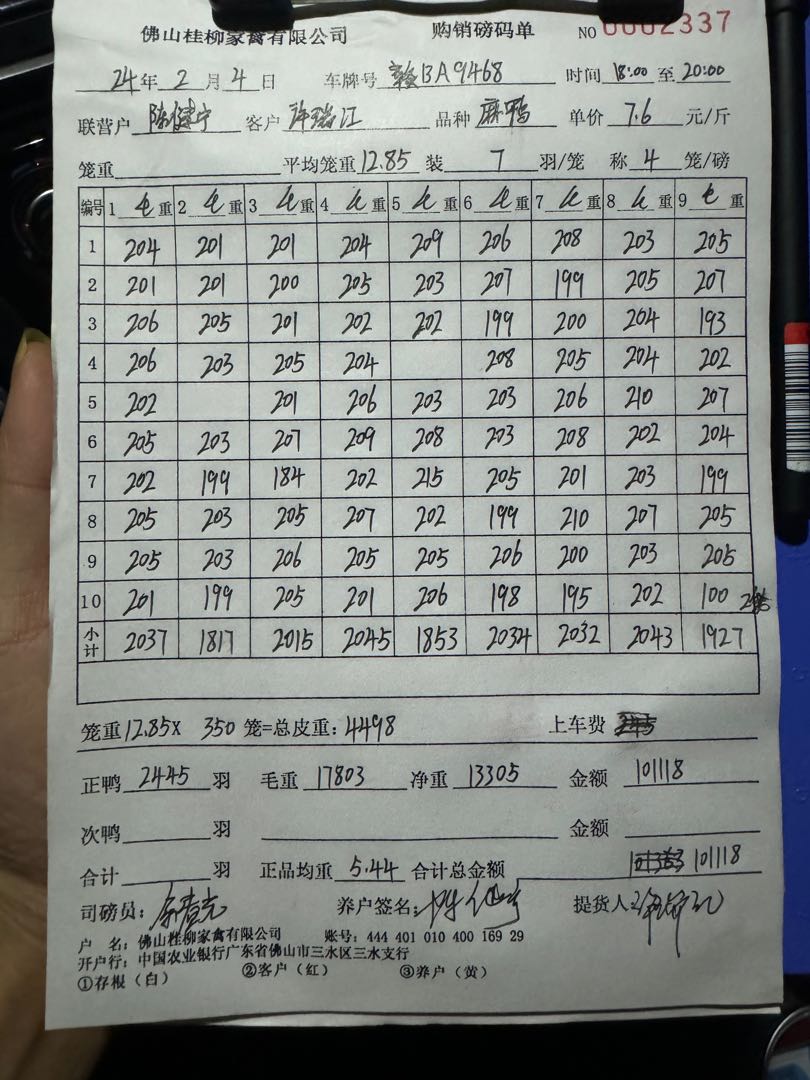 佛山桂柳家禽有限公司 购销磅码单 NO 0002337
24年2月4日 车牌号 赣BA9468 时间 18:00 至 20:00
联营户 陈健宁 客户 许瑞江 品种 麻鸭 单价 7.6 元/斤
笼重 平均笼重 12.85 装 7 羽/笼 称 4 笼/磅
编号 1 毛重 2 毛重 3 毛重 4 毛重 5 毛重 6 毛重 7 毛重 8 毛重 9 毛重
1 204 201 201 204 209 206 208 203 205
2 201 201 200 205 203 207 199 205 207
3 206 205 201 202 202 199 200 204 193
4 206 203 205 204 208 205 204 202
5 202 201 206 203 203 206 210 207
6 205 203 207 209 208 203 208 202 204
7 202 199 184 202 215 205 201 203 199
8 205 203 205 207 202 199 210 207 205
9 205 203 206 205 205 206 200 203 205
10 201 199 205 201 206 198 195 202 100
小计 2037 1817 2015 2045 1853 2034 2032 2043 1927
笼重 12.85 X 350 笼=总皮重: 4498 上车费
正鸭 2445 羽 毛重 17803 净重 13305 金额 101118
次鸭 羽 金额
合计 羽 正品均重 5.44 合计总金额 101118
司磅员: 养户签名: 提货人:
户 名: 佛山桂柳家禽有限公司 账号: 444 401 010 400 169 29
开户行: 中国农业银行广东省佛山市三水区三水支行
①存根(白) ②客户(红) ③养户(黄)